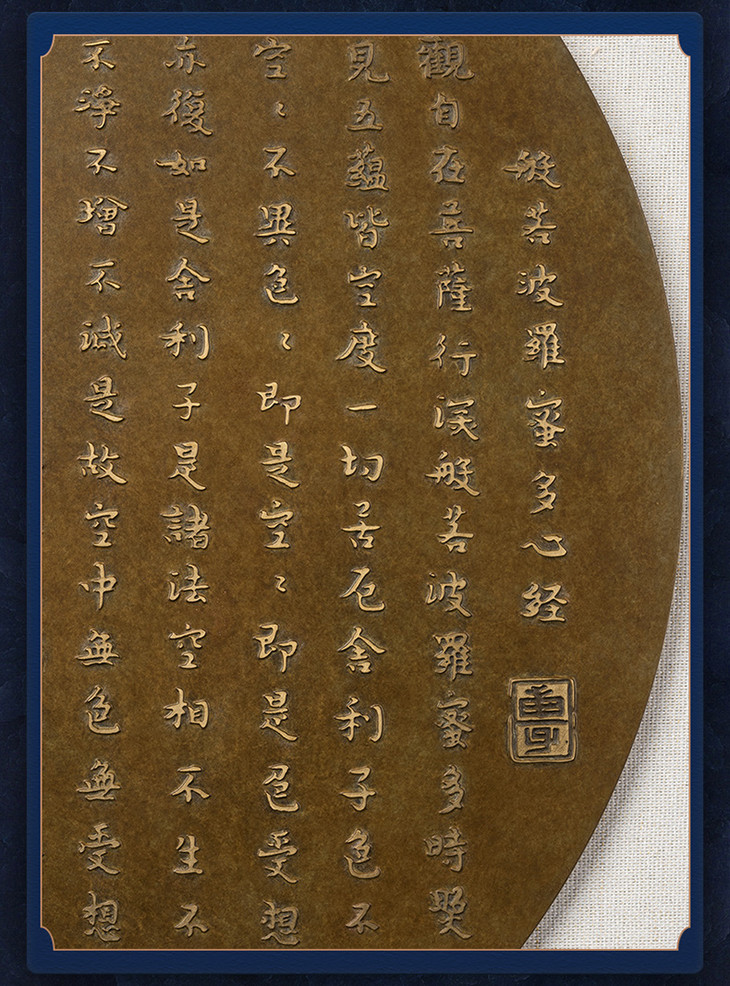 般若波羅蜜多心経
觀自在菩薩行深般若波羅蜜多時照
見五蘊皆空度一切苦厄舍利子色不
空〻不異色〻即是空〻即是色受想
亦復如是舍利子是諸法空相不生不
不淨不增不減是故空中無色無受想